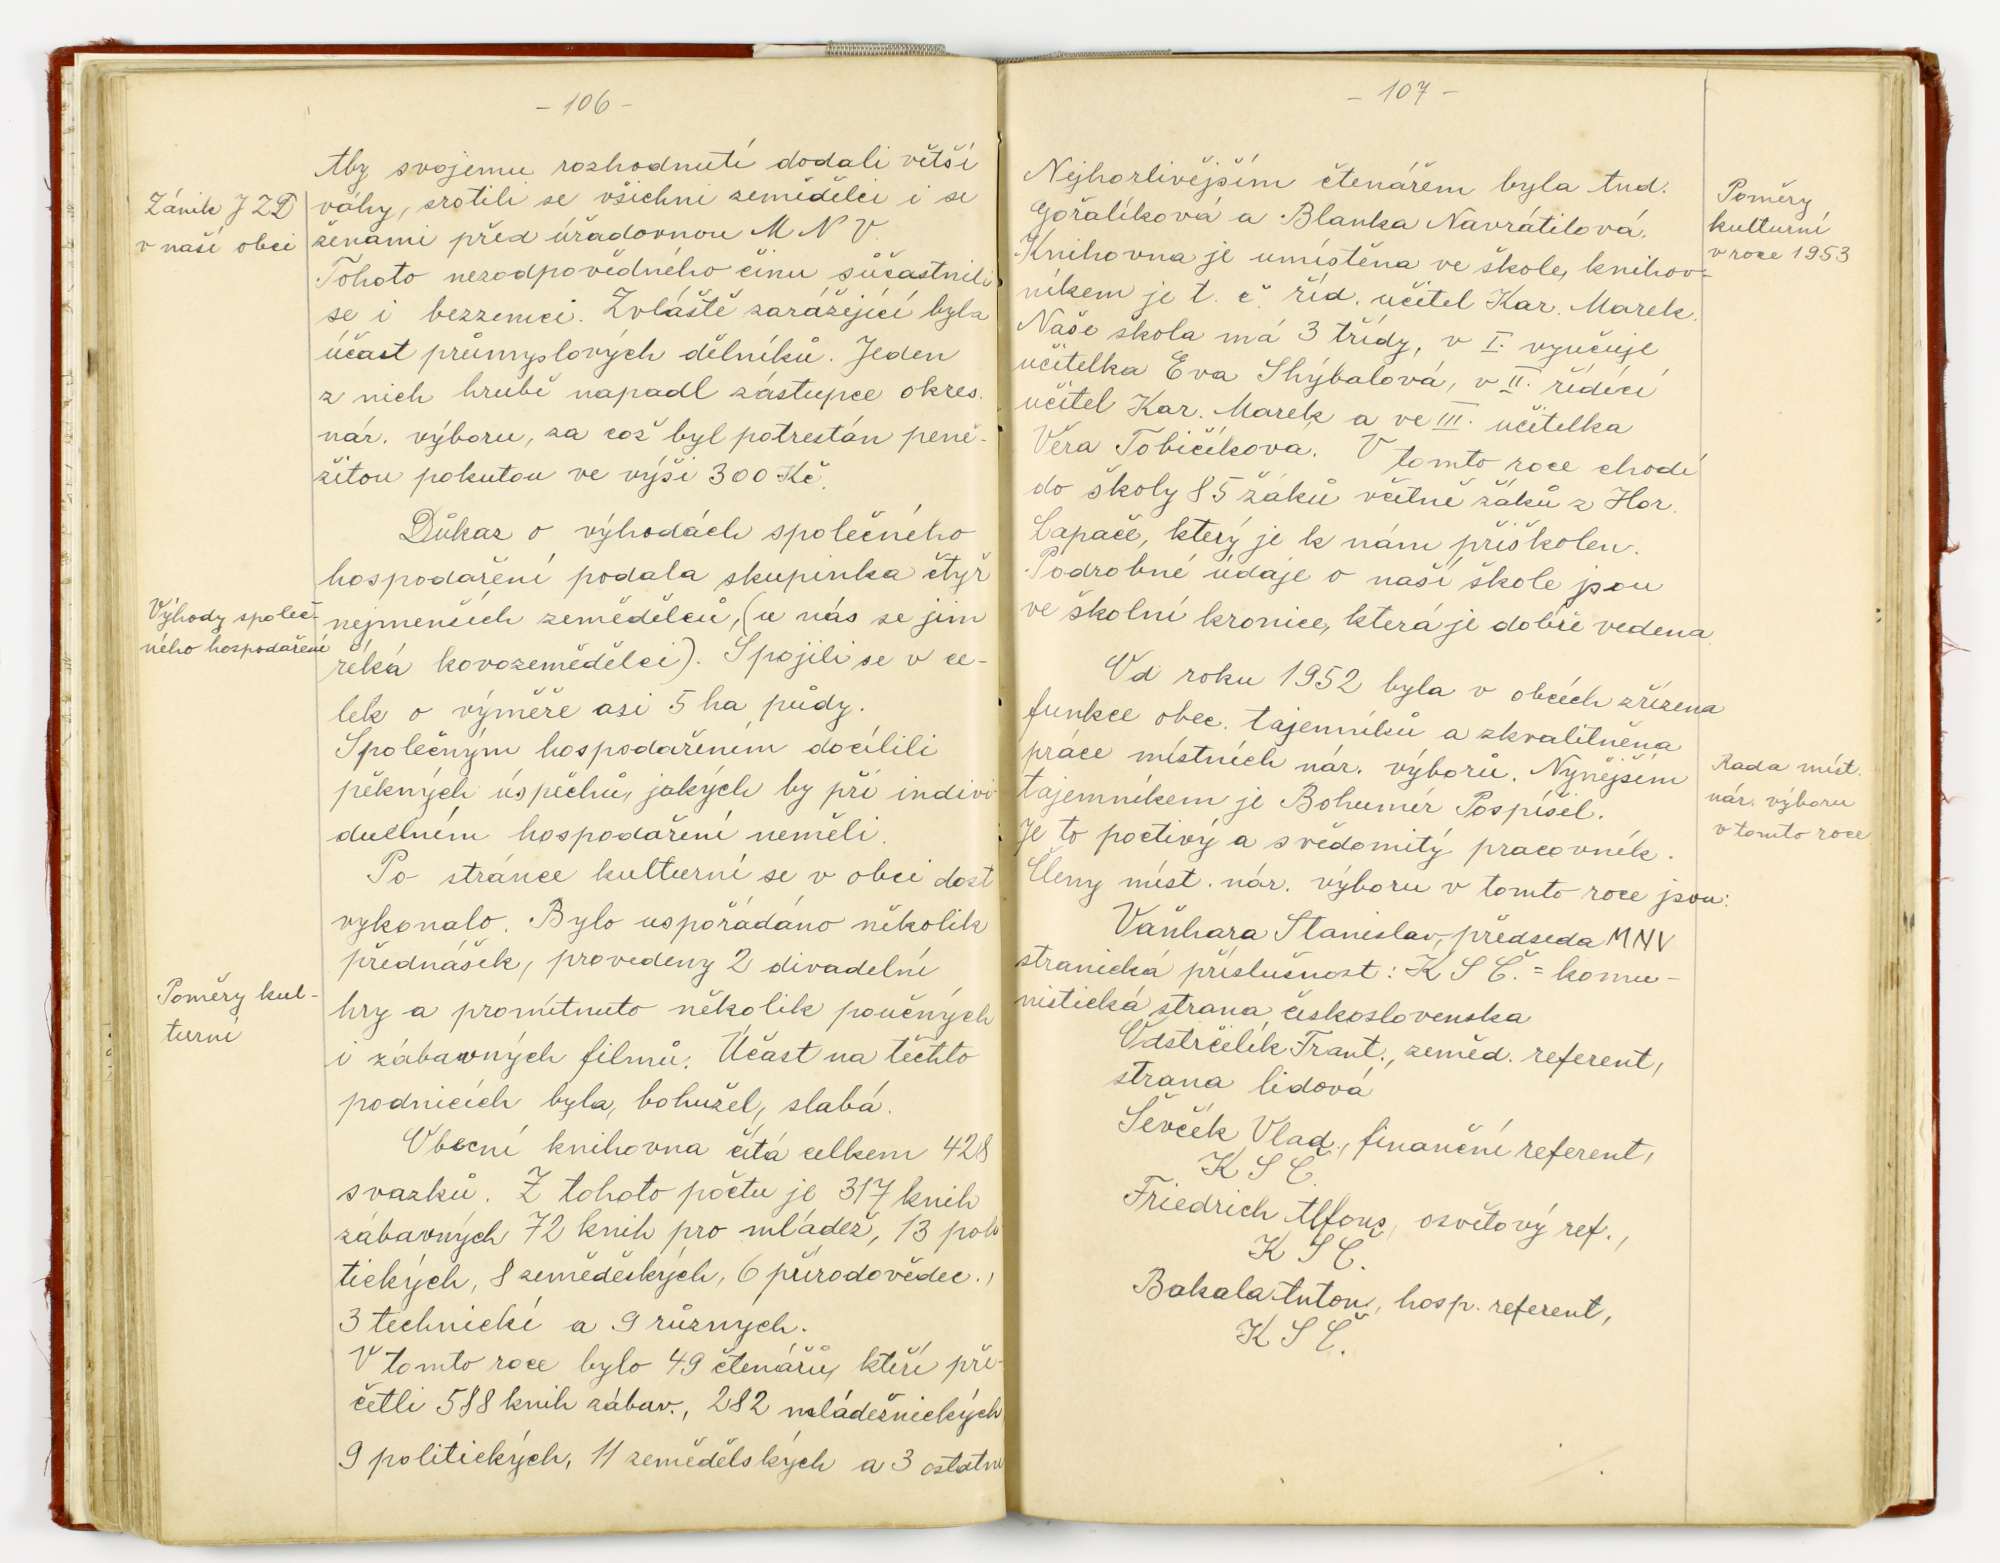 - 106 -
Zánik J Z D
v naší obci
Aby svojemu rozhodnutí dodali větší
váhy, srotili se všichni zemědělci i se
ženami před úřadovnou M N V.
Tohoto nezodpovědného činu súčastnili
se i bezzemci. Zvláště zarážející byla
účast průmyslových dělníků. Jeden
z nich hrubě napadl zástupce okres.
nár. výboru, za což byl potrestán peně-
žitou pokutou ve výši 300 Kč.
Důkaz o výhodách společného
hospodaření podala skupinka čtyř
Výhody společ-
ného hospodaření
nejmenších zemědělců, (u nás se jim
říká kovozemědělci). Spojili se v ce-
lek o výměře asi 5 ha půdy.
Společným hospodařením docílili
pěkných úspěchů, jakých by při indivi
duelním hospodaření neměli.
Po stránce kulturní se v obci dost
vykonalo. Bylo uspořádáno několik
přednášek, provedeny 2 divadelní
Poměry kul-
turní
hry a promítnuto několik poučných
i zábavných filmů. Účast na těchto
podnicích byla, bohužel, slabá.
Obecní knihovna čítá celkem 428
svazků. Z tohoto počtu je 317 knih
zábavných 72 knih pro mládež, 13 poli
tických, 8 zeměděských, 6 přírodovědec.,
3 technické a 9 různých.
V tomto roce bylo 49 čtenářů, kteří pře-
četli 588 knih zábav., 282 mládežnických
9 politických, 11 zemědělských a 3 ostatní
- 107 -
Poměry
kulturní
v roce 1953
Nejhorlivějším čtenářem byla Lud.
Gořalíková a Blanka Navrátilová.
Knihovna je umístěna ve škole, knihov=
níkem je t. č. říd. učitel Kar. Marek.
Naše škola má 3 třídy, v I. vyučuje
učitelka Eva Shýbalová, v II. řídící
učitel Kar. Marek a ve III. učitelka
Věra Tobičíkova. V tomto roce chodí
do školy 85 žáků včítně žáků z Hor.
Lapače, který je k nám přiškolen.
Podrobné údaje o naší škole jsou
ve školní kronice, která je dobře vedena.
Od roku 1952 byla v obcích zřízena
funkce obec. tajemníků a zkvalitněna
práce místních nár. výborů. Nynějším
tajemníkem je Bohumír Pospíšil.
Rada míst.
nár. výboru
v tomto roce
Je to poctivý a svědomitý pracovník.
Členy míst. nár. výboru v tomto roce jsou:
Vaňhara Stanislav, předseda MNV
stranická příslušnost: K S Č. = komu-
nistická strana československa
Odstrčilík Frant., zeměd. referent,
strana lidová
Ševčík Vlad., finanční referent,
K S Č.
Friedrich Alfons, osvětový ref.,
K S Č.
Bakala Anton, hosp. referent,
K S Č.